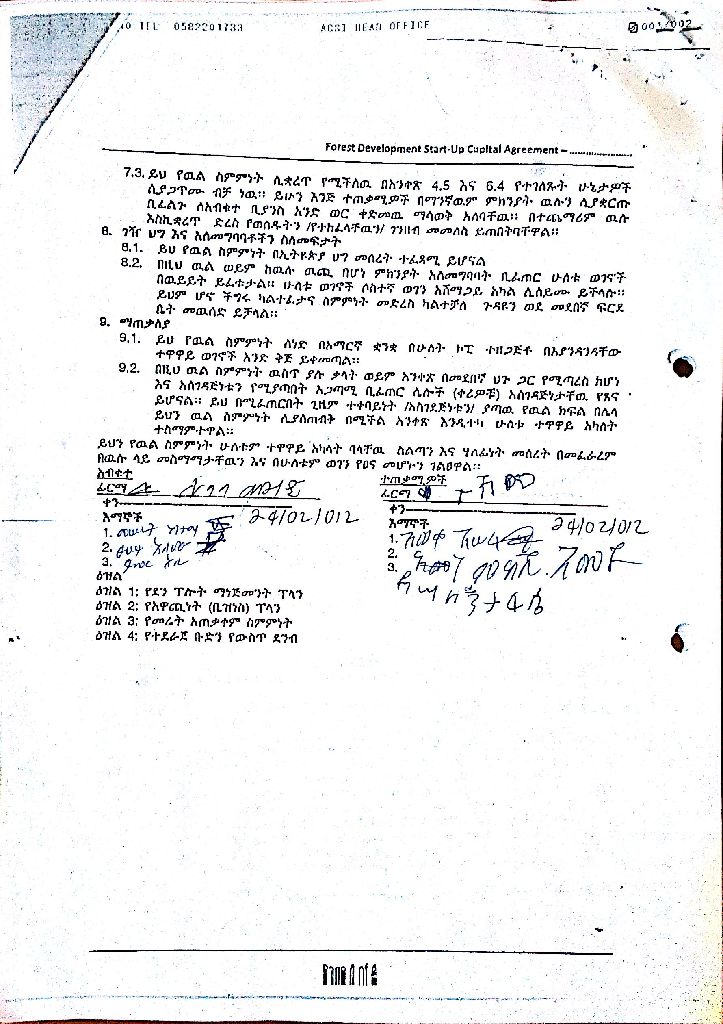 TEL 0582201733 ACSI HEAD OFFICE 001/002
Forest Development Start-Up Capital Agreement – ....................
7.3. ይህ የዉል ስምምነት ሊቋረጥ የሚችለዉ በአንቀጽ 4.5 እና 6.4 የተገለጹት ሁኔታዎች
ሲያጋጥሙ ብቻ ነዉ፡፡ ይሁን እንጅ ተጠቃሚዎች በማንኛዉም ምክንያት ዉሉን ሲያቋርጡ
ቢፈልጉ ለአብቁተ ቢያንስ አንድ ወር ቀድመዉ ማሳወቅ አለባቸዉ፡፡ በተጨማሪም ዉሉ
እስኪቋረጥ ድረስ የወሰዱትን /የተከፈላቸዉን/ ገንዘብ መመለስ ይጠበቅባቸዋል፡፡
8. ገዥ ህግ እና አለመግባባቶችን ስለመፍታት
8.1. ይህ የዉል ስምምነት በኢትዮጵያ ህግ መሰረት ተፈጻሚ ይሆናል
8.2. በዚህ ዉል ወይም ከዉሉ ዉጪ በሆነ ምክንያት አለመግባባት ቢፈጠር ሁለቱ ወገኖች
በዉይይት ይፈቱታል፡፡ ሁለቱ ወገኖች ሶስተኛ ወገን አሸማጋይ አካል ሊሰይሙ ይችላሉ፡፡
ይህም ሆኖ ችግሩ ካልተፈታና ስምምነት መድረስ ካልተቻለ ጉዳዩን ወደ መደበኛ ፍርድ
ቤት መዉሰድ ይቻላል፡፡
9. ማጠቃለያ
9.1. ይህ የዉል ስምምነት ሰነድ በአማርኛ ቋንቋ በሁለት ኮፒ ተዘጋጅቶ በእያንዳንዳቸው
ተዋዋይ ወገኖች አንድ ቅጅ ይቀመጣል፡፡
9.2. በዚህ ዉል ስምምነት ዉስጥ ያሉ ቃላት ወይም አንቀጽ በመደበኛ ህጉ ጋር የሚጣረስ ከሆነ
እና አስገዳጅነቱን የሚያጣበት አጋጣሚ ቢፈጠር ሌሎች (ቀሪዎቹ) አስገዳጅነታቸዉ የጸና
ይሆናል፡፡ ይህ በሚፈጠርበት ጊዜም ተቀባይነት /አስገዳጅነቱን/ ያጣዉ የዉል ክፍል በሌላ
ይህን ዉል ስምምነት ሊያስጠብቅ በሚችል አንቀጽ እንዲተካ ሁለቱ ተዋዋይ አካላት
ተስማምተዋል፡፡
ይህን የዉል ስምምነት ሁለቱም ተዋዋይ አካላት ባላቸዉ ስልጣን እና ሃላፊነት መሰረት በመፈራረም
በዉሉ ላይ መስማማታቸዉን እና በሁለቱም ወገን የፀና መሆኑን ገልፀዋል፡፡
አብቁተ
ፊርማ
ቀን
24/02/012
እማኞች
1.
2.
3.
ተጠቃሚዎች
ፊርማ
ቀን
24/02/012
እማኞች
1.
2.
3.
ዕዝል
ዕዝል 1፡ የደን ፕሎት ማኔጅመንት ፕላን
ዕዝል 2፡ የአዋጪነት (ቢዝነስ) ፕላን
ዕዝል 3፡ የመሬት አጠቃቀም ስምምነት
ዕዝል 4፡ የተደራጀ ቡድን የውስጥ ደንብ